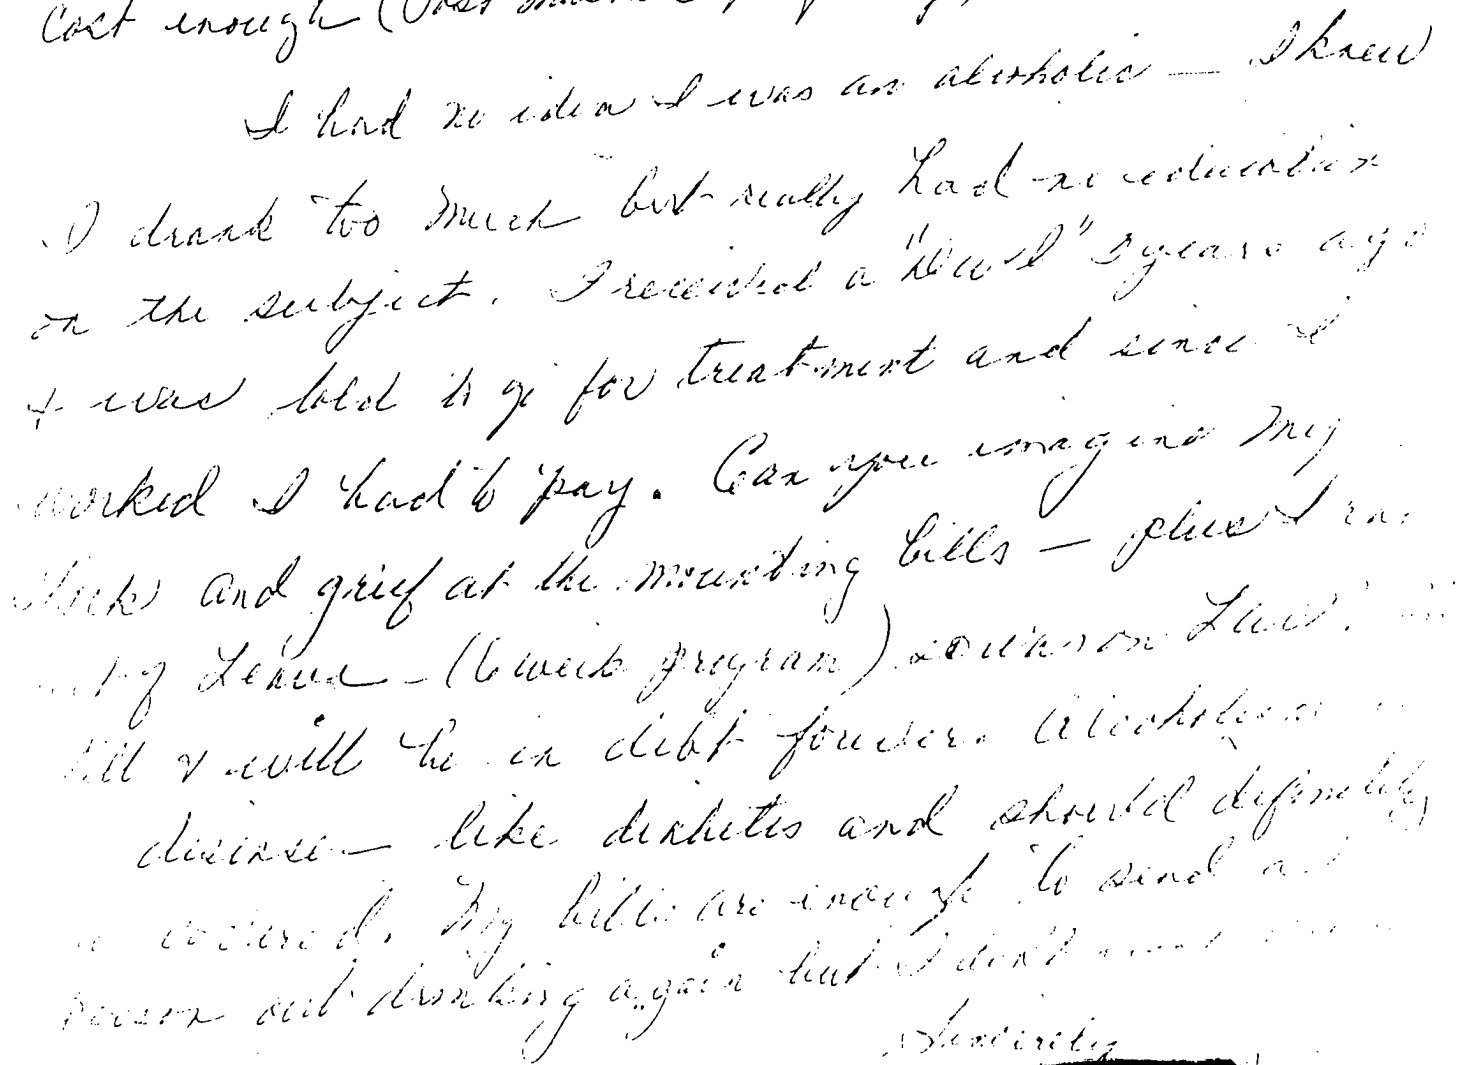 Cost enough (
I had no idea I was an alcoholic — I knew
I drank too much but really had no education
on the subject. I received a "DWI" 3 years ago
& was told to go for treatment and since I
worked I had to pay. Can you imagine my
shock and grief at the mounting bills — plus I ran
out of Leave - (6 week program) so was on
bill & will be in debt forever. Alcoholism
disease — like diabetes and should definitely
covered. My bills are enough to send a
person out drinking again but I don't
Sincerely